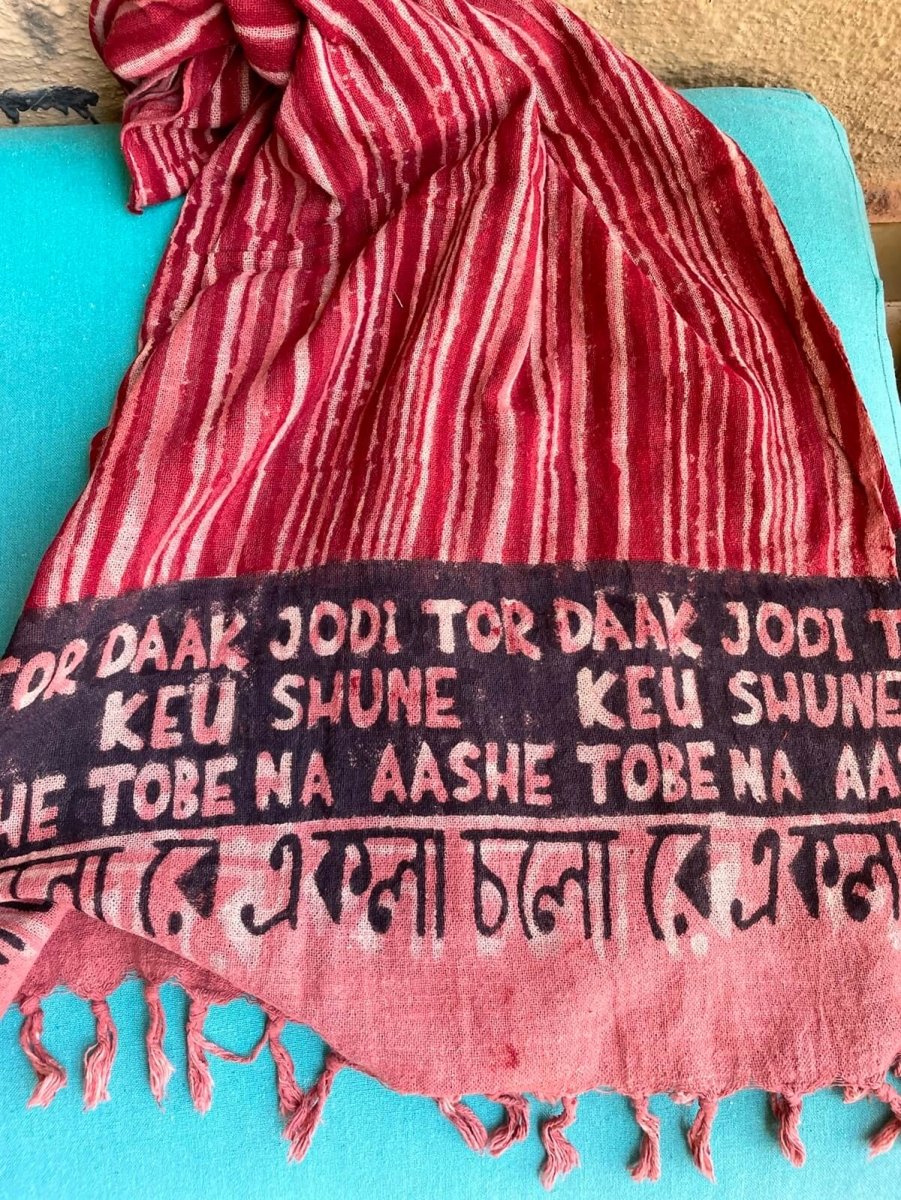 TOR DAAK JODI TOR DAAK JODI T
KEU SHUNE KEU SHUNE
HE TOBE NA AASHE TOBE NA AAS
লো রে একলা চলো রে একলা